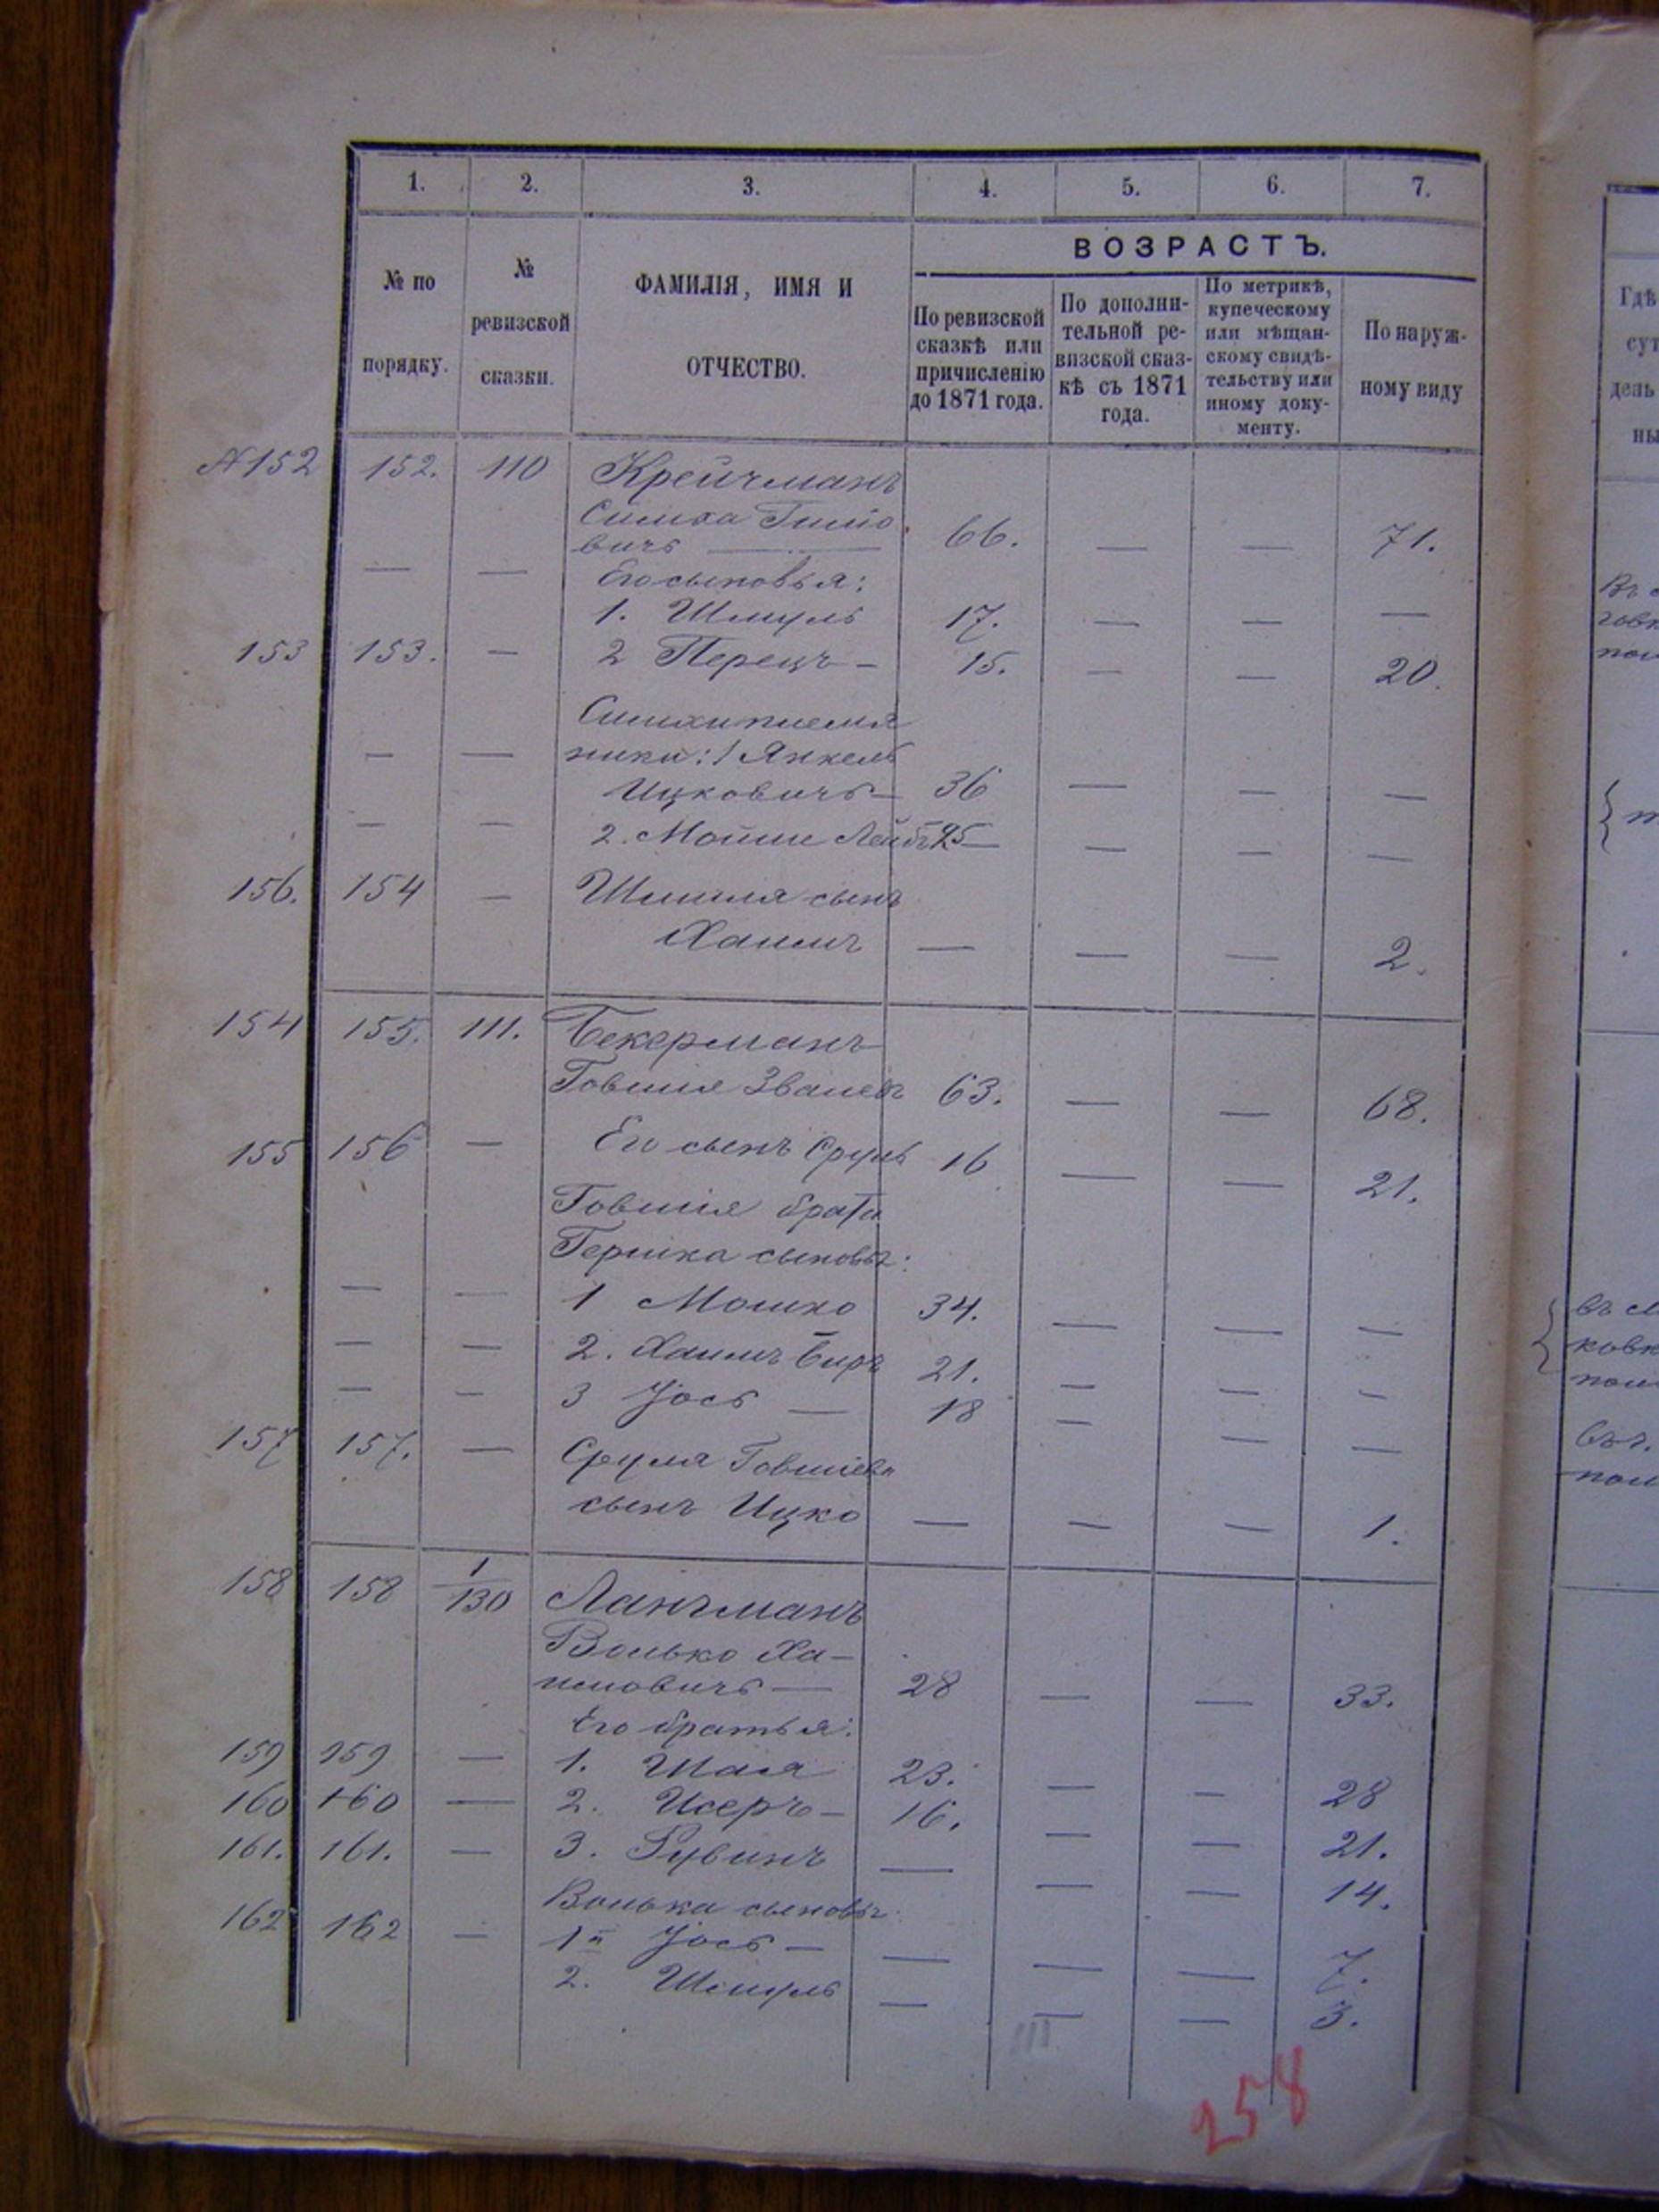 1. 2. 3. 4. 5. 6. 7.
№ по порядку.
№ ревизской сказки.
ФАМИЛІЯ, ИМЯ И ОТЧЕСТВО.
ВОЗРАСТЪ.
По ревизской
сказкѣ или
причисленію
до 1871 года.
По дополни-
тельной ре-
визской сказ-
кѣ съ 1871
года.
По метрикѣ,
купеческому
или мѣщан-
скому свидѣ-
тельству или
иному доку-
менту.
По наруж-
ному виду
№152 152. 110 Крейчманъ
Симха
вичъ — 66. — — 71.
— — Его сыновья:
1. Шмуль 17. — — —
153 153. — 2 Перецъ — 15. — — 20.
Симхи племя
— — ники: 1 Янкель
Ицковичъ — 36 — — —
— — 2. Мойше Лейбъ 25 — — — —
156. 154 — Шмиля сынъ
Хаимъ — — — 2.
154 155. 111. Бекерманъ
Говшія 63. — — 68.
155 156 — Его сынъ Сруль 16 — — 21.
Говшія брата
Гершка сыновья:
— — 1 Мошко 34. — — —
— — 2. Хаимъ Беръ 21. — — —
— — 3 Іось — 18 — — —
157 157. — Сруля Говшіева
сынъ Ицко — — — 1.
158 158 1/130 Лангманъ
Волько Ха-
имовичъ — 28 — — 33.
Его братья:
159 159 — 1. Шая 23. — — 28
160 160 — 2. Исеръ — 16. — — 21.
161. 161. — 3. Рувинъ — — — 14.
Волька сыновья:
162 162 — 1й Іось — — — — 7.
2. Шмуль — — — 3.
258
Гдѣ
сут
дель
ны